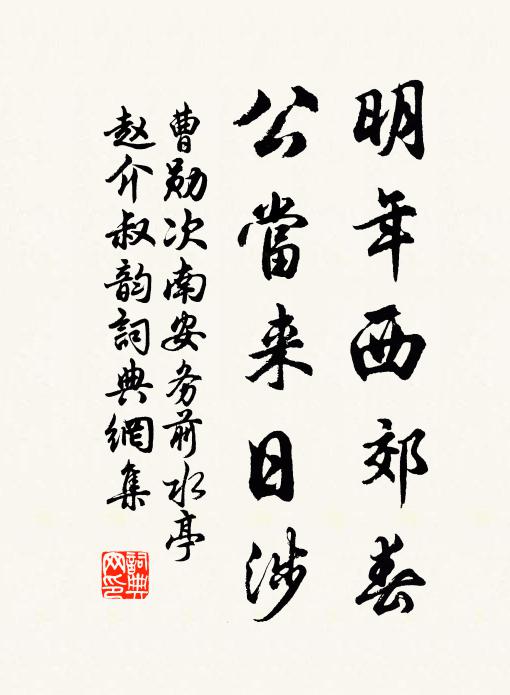 明年西郊春
公當来日涉
曹勋次南安务前水亭
赵介叔韵詞典網集
詞典
网印